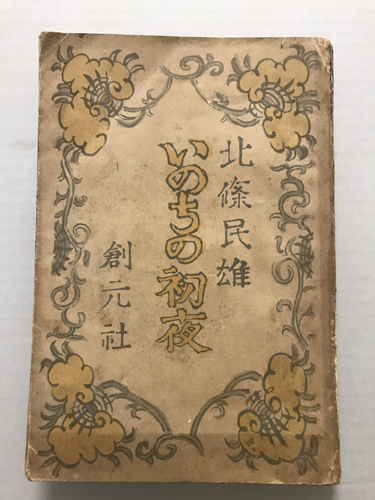 北條民雄
いのちの初夜
創元社